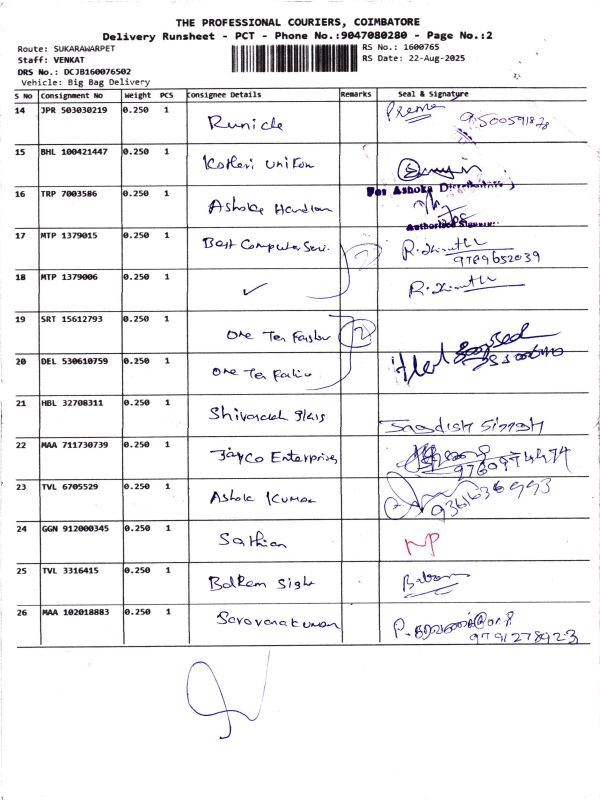 THE PROFESSIONAL COURIERS, COIMBATORE
Delivery Runsheet - PCT - Phone No.:9047080280 - Page No.:2
Route: SUKARAWARPET
Staff: VENKAT
DRS No.: DCJB160076502
Vehicle: Big Bag Delivery
RS No.: 1600765
RS Date: 22-Aug-2025
S NO Consignment No Weight PCS Consignee Details Remarks Seal & Signature
14 JPR 503030219 0.250 1 Runicle Prema
15 BHL 100421447 0.250 1 Kotleri Unifon
For Ashoka Distributors
16 TRP 7003586 0.250 1 Ashoke
Authorised
17 MTP 1379015 0.250 1 Best Computer Serv. 2 R.
9789652039
18 MTP 1379006 0.250 1 ✓ R.
19 SRT 15612793 0.250 1 One Ten 2
20 DEL 530610759 0.250 1 One Ten
21 HBL 32708311 0.250 1 Jagdish Singh
22 MAA 711730739 0.250 1 Jayco Enterprises
9760974474
23 TVL 6705529 0.250 1 Ashok Kumar
9361636993
24 GGN 912000345 0.250 1 Sathian NP
25 TVL 3316415 0.250 1 Balram Sigh
26 MAA 102018883 0.250 1 Saravanakumar
9791278923